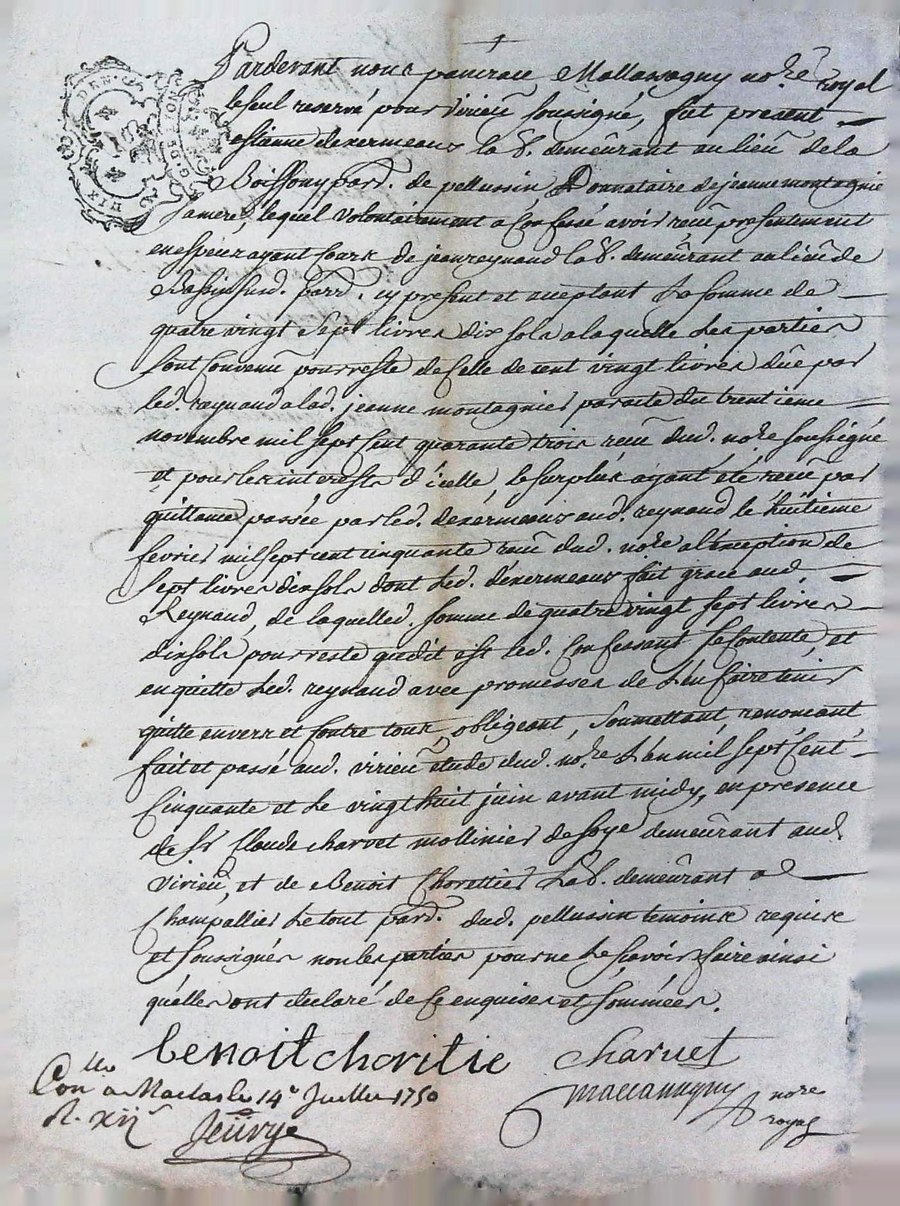 Pardevant nous pancrace Mallassagny no.re royal
le seul reservé pour virieu soussigné, fut present
estienne dexermeaux lab. demeurant au lieu de la
Boissony parr. de pellussin, Donnataire de jeanne montagnie
sa mere, lequel volontairement a confessé avoir receu presentement
en especes ayant cours de jean reynaud lab. demeurant au lieu de
parr. cy present et aceptant La somme de
quatre vingt sept livres dix sols a laquelle les parties
sont convenu pour reste de celle de cent vingt livres düe par
led. reynaud a lad. jeanne montagnier par acte du trentieme
novembre mil sept cent quarante trois receu dud. no.re soussigné
et pour les interests d'icelle, le surplus ayant été receu par
quittance passée par led. dexermeaux aud. reynaud le huitieme
fevrier mil sept cent cinquante receu dud. no.re a l'exception de
sept livres dix sols dont led. dexermeaux fait grace aud.
Reynaud, de laquelle d. somme de quatre vingt sept livres
dix sols pour reste que dit est led. Confessant se Contente, et
en quitte led. reynaud avec promesses de L'en faire tenir
quitte envers et contre tous, obligeant, soumettant, renonceant
fait et passé aud. virieu étude dud. no.re L'an mil sept Cent
Cinquante et le vingt huit juin avant midy, en presence
de Sr Claude charvet mollinier de soye demeurant aud.
virieu, et de Benoit Chorettier Lab. demeurant a
Champallier le tout parr. dud. pellussin temoins requis
et soussignés non les parties pour ne le sçavoir faire ainsi
quelles ont declaré de ce enquises et sommées.
benoit choritie charvet
mallassagny no.re
royal
Con.lle a Maclas le 14e Juillet 1750
R. xij s
Jeurye